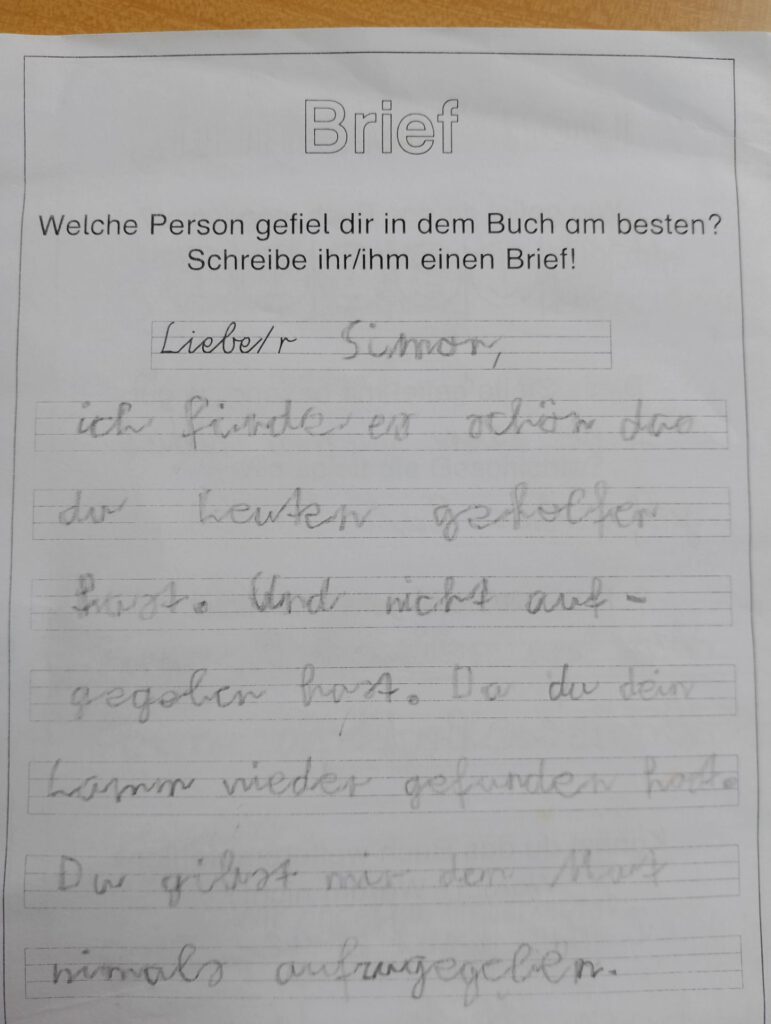 Brief
Welche Person gefiel dir in dem Buch am besten?
Schreibe ihr/ihm einen Brief!
Liebe/r Simon,
ich finde es schön das
du Leuten geholfen
hast. Und nicht auf-
gegeben hast. Da du dein
Lamm wieder gefunden hast.
Du gibst mir den Mut
nimals aufzugegeben.